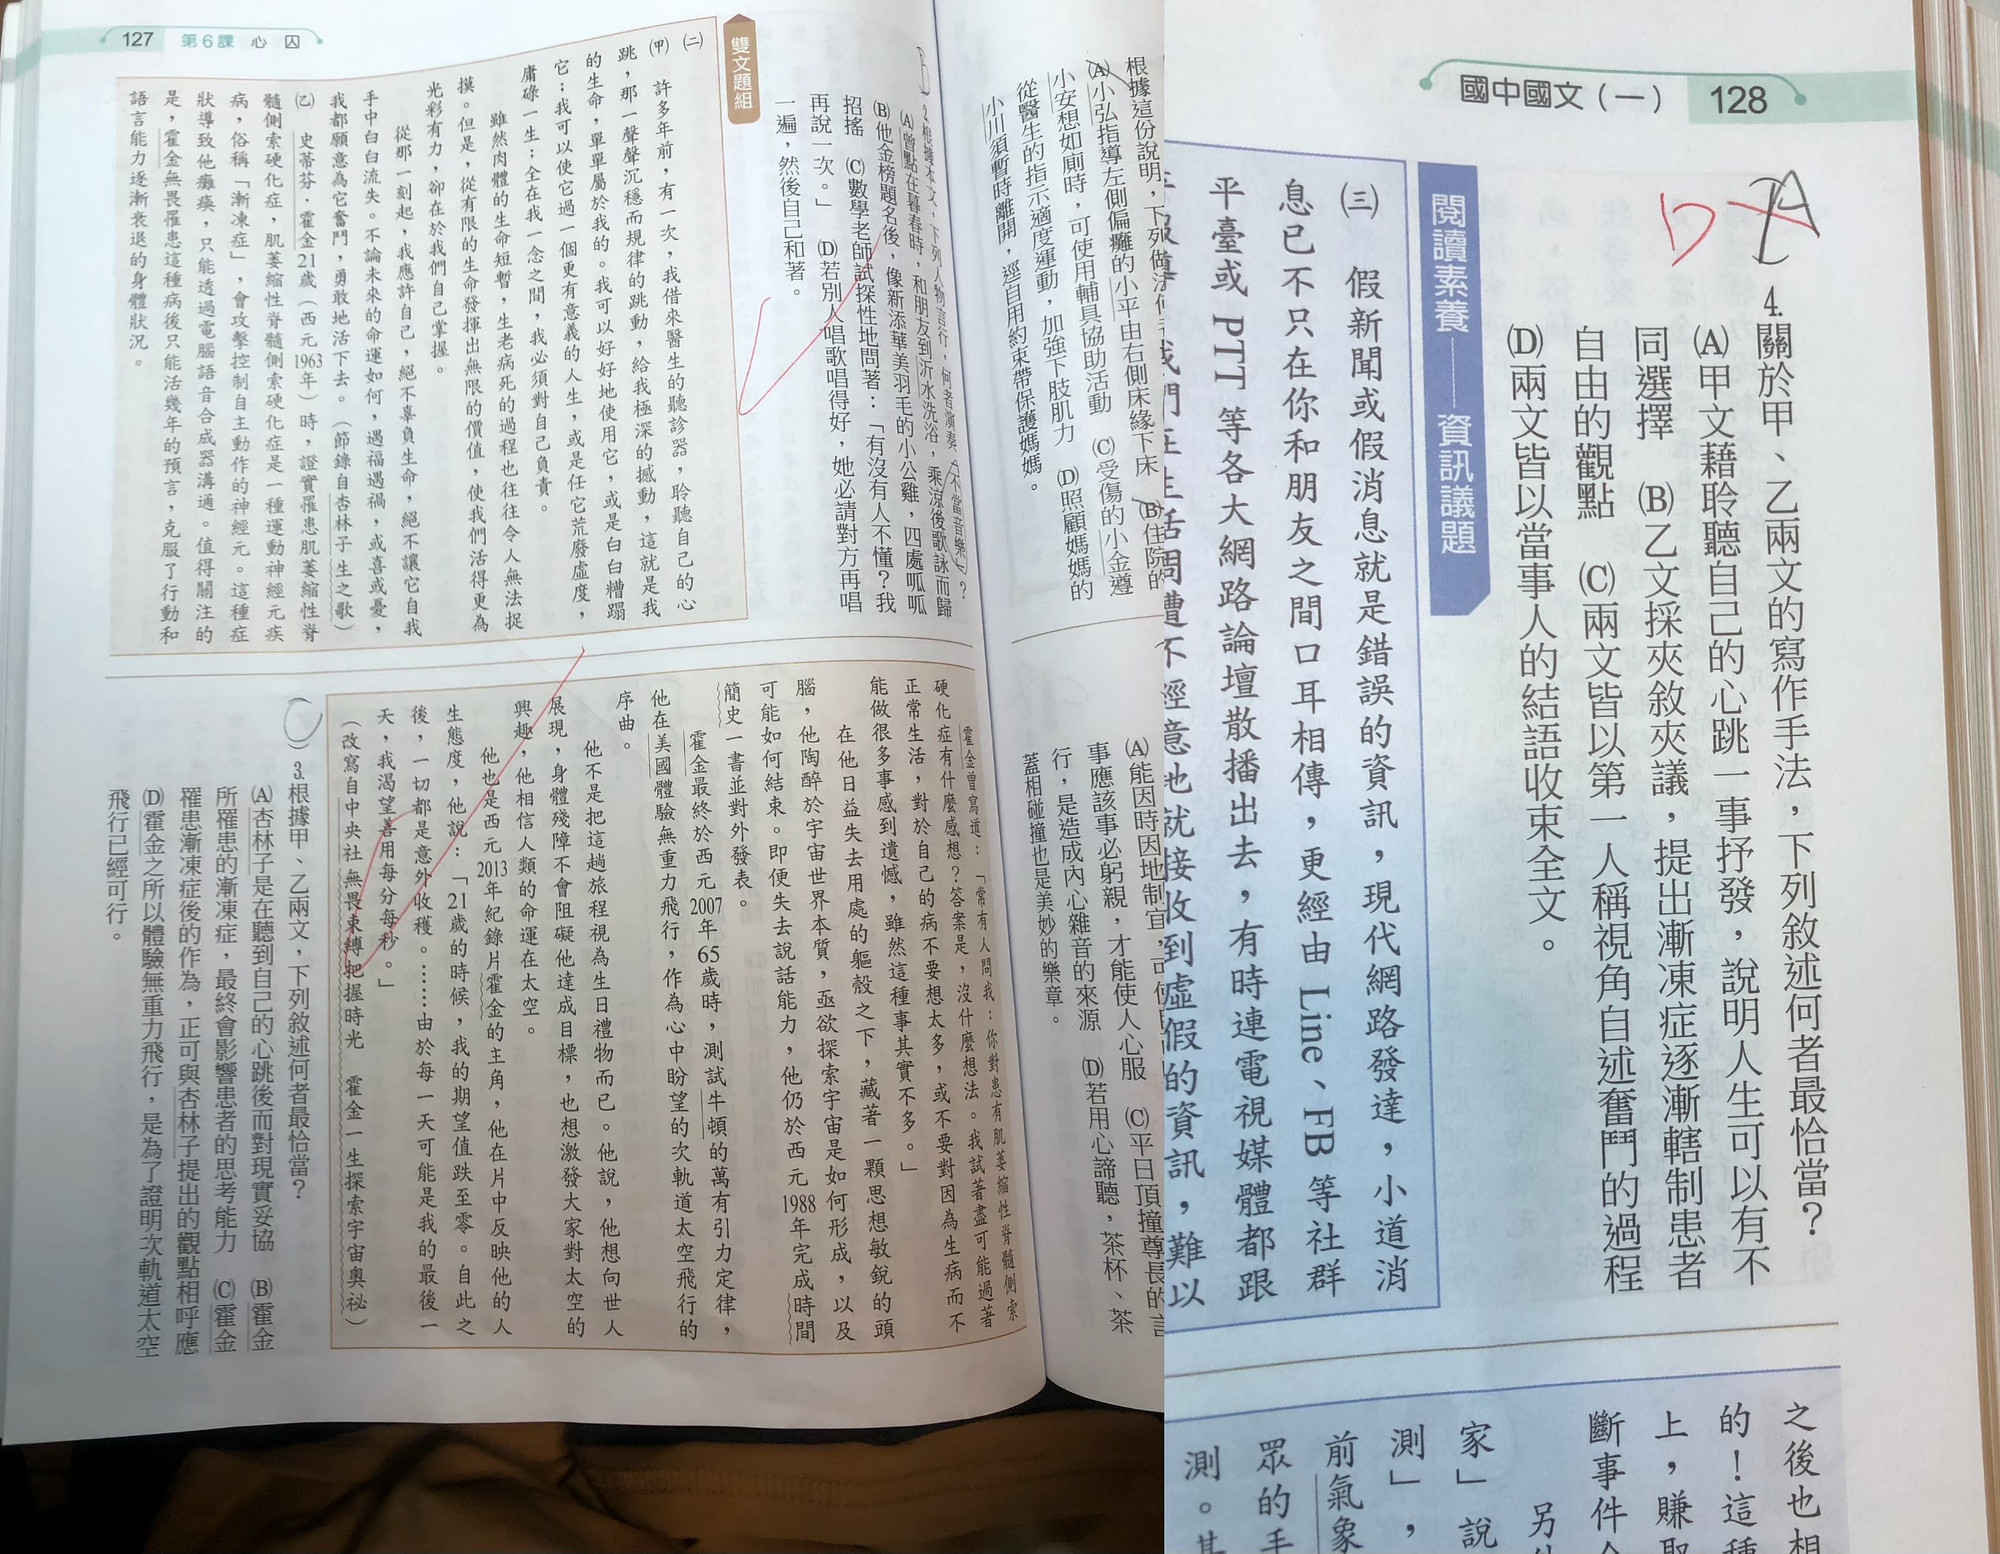 127 第6課 心囚
根據這份說明，下列做法何
(A)小弘指導左側偏癱的小平由右側床緣下床 (B)住院的
小安想如廁時，可使用輔具協助活動 (C)受傷的小金遵
從醫生的指示適度運動，加強下肢肌力 (D)照顧媽媽的
小川須暫時離開，逕自用約束帶保護媽媽。
2.根據本文，下列人物言行，何者演奏「不當音樂」？
(A)曾點在暮春時，和朋友到沂水洗浴，乘涼後歌詠而歸
(B)他金榜題名後，像新添華美羽毛的小公雞，四處呱呱
招搖 (C)數學老師試探性地問著：「有沒有人不懂？我
再說一次。」 (D)若別人唱歌唱得好，她必請對方再唱
一遍，然後自己和著。
雙文題組
(二)
(甲) 許多年前，有一次，我借來醫生的聽診器，聆聽自己的心
跳，那一聲聲沉穩而規律的跳動，給我極深的撼動，這就是我
的生命，單單屬於我的。我可以好好地使用它，或是白白糟蹋
它；我可以使它過一個更有意義的人生，或是任它荒廢虛度，
庸碌一生；全在我一念之間，我必須對自己負責。
雖然肉體的生命短暫，生老病死的過程也往往令人無法捉
摸。但是，從有限的生命發揮出無限的價值，使我們活得更為
光彩有力，卻在於我們自己掌握。
從那一刻起，我應許自己，絕不辜負生命，絕不讓它自我
手中白白流失。不論未來的命運如何，遇福遇禍，或喜或憂，
我都願意為它奮鬥，勇敢地活下去。（節錄自杏林子生之歌）
(乙) 史蒂芬．霍金21歲（西元1963年）時，證實罹患肌萎縮性脊
髓側索硬化症，肌萎縮性脊髓側索硬化症是一種運動神經元疾
病，俗稱「漸凍症」，會攻擊控制自主動作的神經元。這種症
狀導致他癱瘓，只能透過電腦語音合成器溝通。值得關注的
是，霍金無畏罹患這種病後只能活幾年的預言，克服了行動和
語言能力逐漸衰退的身體狀況。
(A)能因時因地制宜，
事應該事必躬親，才能使人心服 (C)平日頂撞尊長的言
行，是造成內心雜音的來源 (D)若用心諦聽，茶杯、茶
蓋相碰撞也是美妙的樂章。
霍金曾寫道：「常有人問我：你對患有肌萎縮性脊髓側索
硬化症有什麼感想？答案是，沒什麼想法。我試著盡可能過著
正常生活，對於自己的病不要想太多，或不要對因為生病而不
能做很多事感到遺憾，雖然這種事其實不多。」
在他日益失去用處的軀殼之下，藏著一顆思想敏銳的頭
腦，他陶醉於宇宙世界本質，亟欲探索宇宙是如何形成，以及
可能如何結束。即便失去說話能力，他仍於西元1988年完成時間
簡史一書並對外發表。
霍金最終於西元2007年65歲時，測試牛頓的萬有引力定律，
他在美國體驗無重力飛行，作為心中盼望的次軌道太空飛行的
序曲。
他不是把這趟旅程視為生日禮物而已。他說，他想向世人
展現，身體殘障不會阻礙他達成目標，也想激發大家對太空的
興趣，他相信人類的命運在太空。
他也是西元2013年紀錄片霍金的主角，他在片中反映他的人
生態度，他說：「21歲的時候，我的期望值跌至零。自此之
後，一切都是意外收穫。……由於每一天可能是我的最後一
天，我渴望善用每分每秒。」
（改寫自中央社無畏束縛把握時光 霍金一生探索宇宙奧祕）
（ ）3.根據甲、乙兩文，下列敘述何者最恰當？
(A)杏林子是在聽到自己的心跳後而對現實妥協 (B)霍金
所罹患的漸凍症，最終會影響患者的思考能力 (C)霍金
罹患漸凍症後的作為，正可與杏林子提出的觀點相呼應
(D)霍金之所以體驗無重力飛行，是為了證明次軌道太空
飛行已經可行。
國中國文(一) 128
A
D
4.關於甲、乙兩文的寫作手法，下列敘述何者最恰當？
(A)甲文藉聆聽自己的心跳一事抒發，說明人生可以有不
同選擇 (B)乙文採夾敘夾議，提出漸凍症逐漸轄制患者
自由的觀點 (C)兩文皆以第一人稱視角自述奮鬥的過程
(D)兩文皆以當事人的結語收束全文。
閱讀素養——資訊議題
(三) 假新聞或假消息就是錯誤的資訊，現代網路發達，小道消
息已不只在你和朋友之間口耳相傳，更經由 Line、FB 等社群
平臺或 PTT 等各大網路論壇散播出去，有時連電視媒體都跟
我們在生活周遭不經意地就接收到虛假的資訊，難以
之後也相
的！這種
上，賺取
斷事件
另
家」說
測」，
前氣象
眾的手
測。其